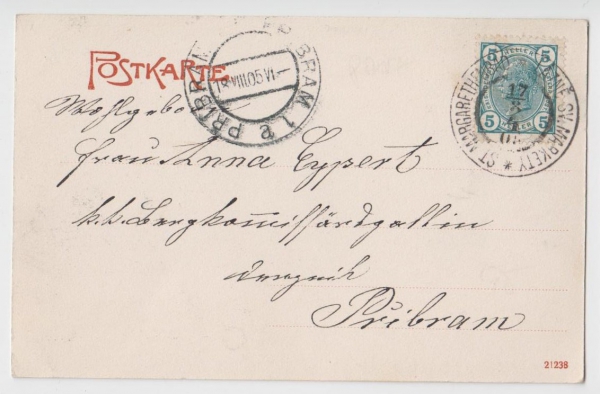 POSTKARTE.
PŘIBRAM 1
18 VIII 05 VI
5 5
5 HELLER 5
ST. MARGARETHEN
SV. MARKETY
17
8
05
Wohlgeboren
Frau Anna Eypert
k. k. Bergkommissärsgattin
Přibram
21238